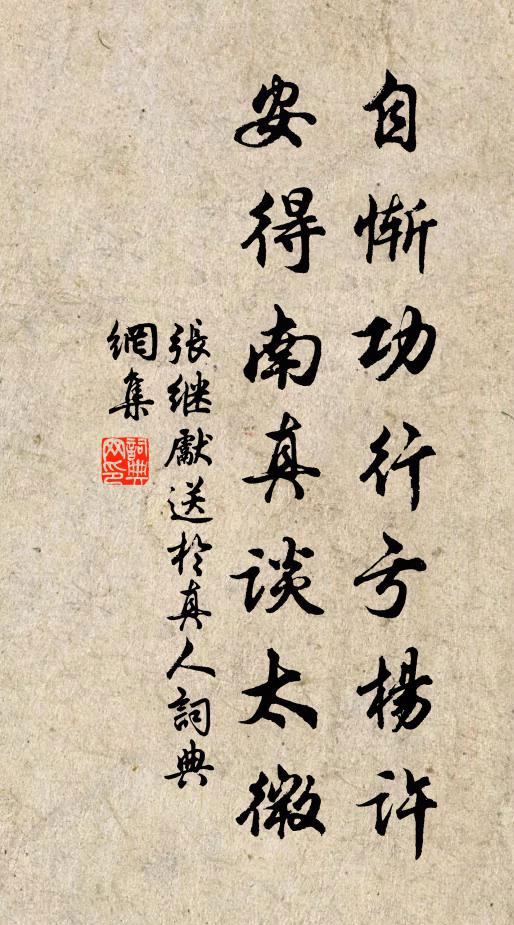 自慚功行亏楊许
安得南真谈太微
張继獻送於真人詞典
網集
詞典
网印